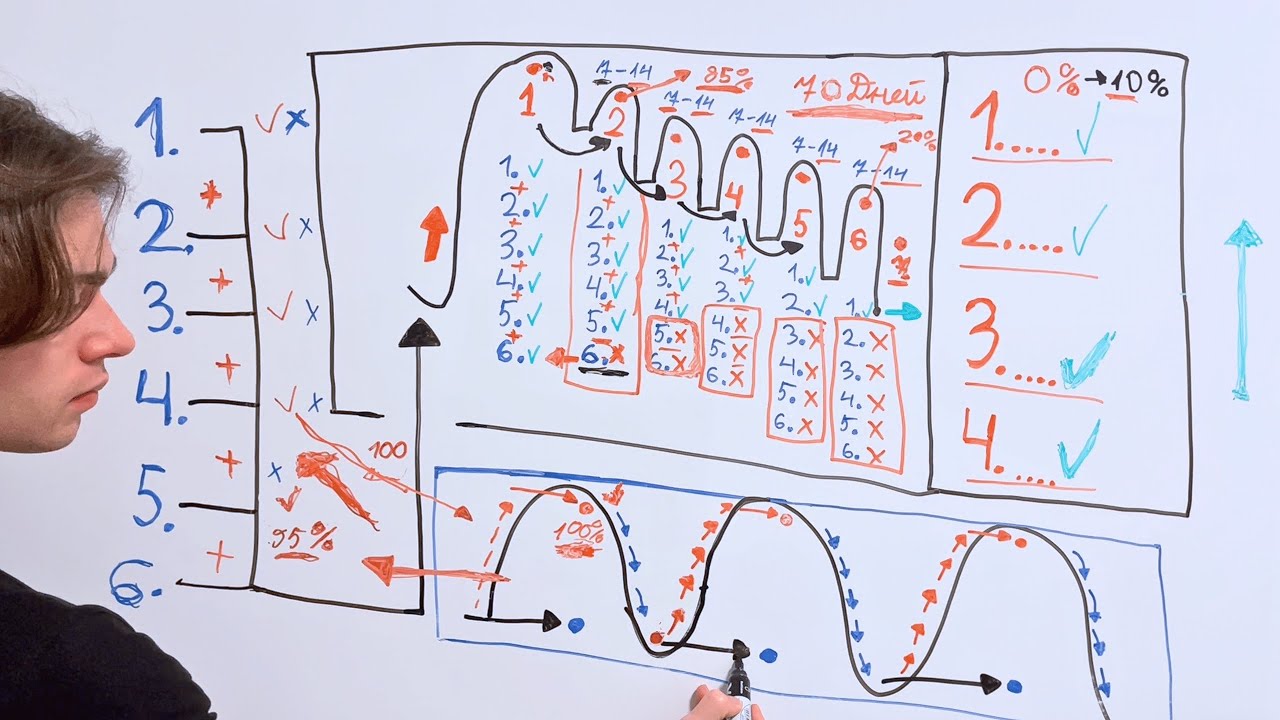 1. ✓ x
*
2. ✓ x
+
3. ✓ x
+
4. ✓ x
+
5. x ✓
+
6.
95%
100
1
7-14
95%
2
7-14
3
7-14
4
7-14
5
7-14
6
20%
70 Дней
1. ✓
+
2. ✓
+
3. ✓
+
4. ✓
+
5. ✓
+
6. ✓
1. ✓
+
2. ✓
+
3. ✓
+
4. ✓
+
5. ✓
6. x
1. ✓
+
2. ✓
+
3. ✓
+
4. ✓
5. x
6. x
1. ✓
+
2. ✓
+
3. ✓
4. x
5. x
6. x
1. ✓
2. ✓
3. x
4. x
5. x
6. x
1. ✓
2. x
3. x
4. x
5. x
6. x
0% → 10%
1..... ✓
2..... ✓
3..... ✓
4..... ✓
100%